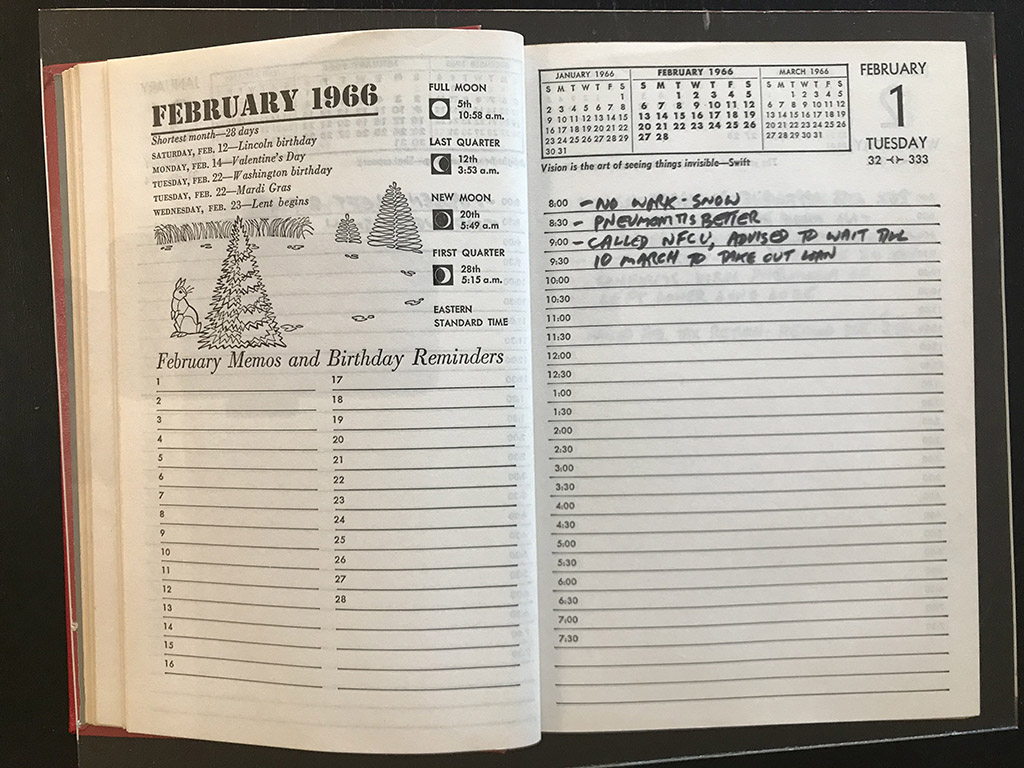 FEBRUARY 1966
Shortest month—28 days
SATURDAY, FEB. 12—Lincoln birthday
MONDAY, FEB. 14—Valentine's Day
TUESDAY, FEB. 22—Washington birthday
TUESDAY, FEB. 22—Mardi Gras
WEDNESDAY, FEB. 23—Lent begins
FULL MOON
5th
10:58 a.m.
LAST QUARTER
12th
3:53 a.m.
NEW MOON
20th
5:49 a.m
FIRST QUARTER
28th
5:15 a.m.
EASTERN
STANDARD TIME
February Memos and Birthday Reminders
1
2
3
4
5
6
7
8
9
10
11
12
13
14
15
16
17
18
19
20
21
22
23
24
25
26
27
28
JANUARY 1966
S M T W T F S
1
2 3 4 5 6 7 8
9 10 11 12 13 14 15
16 17 18 19 20 21 22
23 24 25 26 27 28 29
30 31
FEBRUARY 1966
S M T W T F S
1 2 3 4 5
6 7 8 9 10 11 12
13 14 15 16 17 18 19
20 21 22 23 24 25 26
27 28
MARCH 1966
S M T W T F S
1 2 3 4 5
6 7 8 9 10 11 12
13 14 15 16 17 18 19
20 21 22 23 24 25 26
27 28 29 30 31
FEBRUARY
1
TUESDAY
32 333
Vision is the art of seeing things invisible—Swift
8:00 - NO WORK - SNOW
8:30 - PNEUMONITIS BETTER
9:00 - CALLED NFCU, ADVISED TO WAIT TILL
9:30 10 MARCH TO TAKE OUT LOAN
10:00
10:30
11:00
11:30
12:00
12:30
1:00
1:30
2:00
2:30
3:00
3:30
4:00
4:30
5:00
5:30
6:00
6:30
7:00
7:30